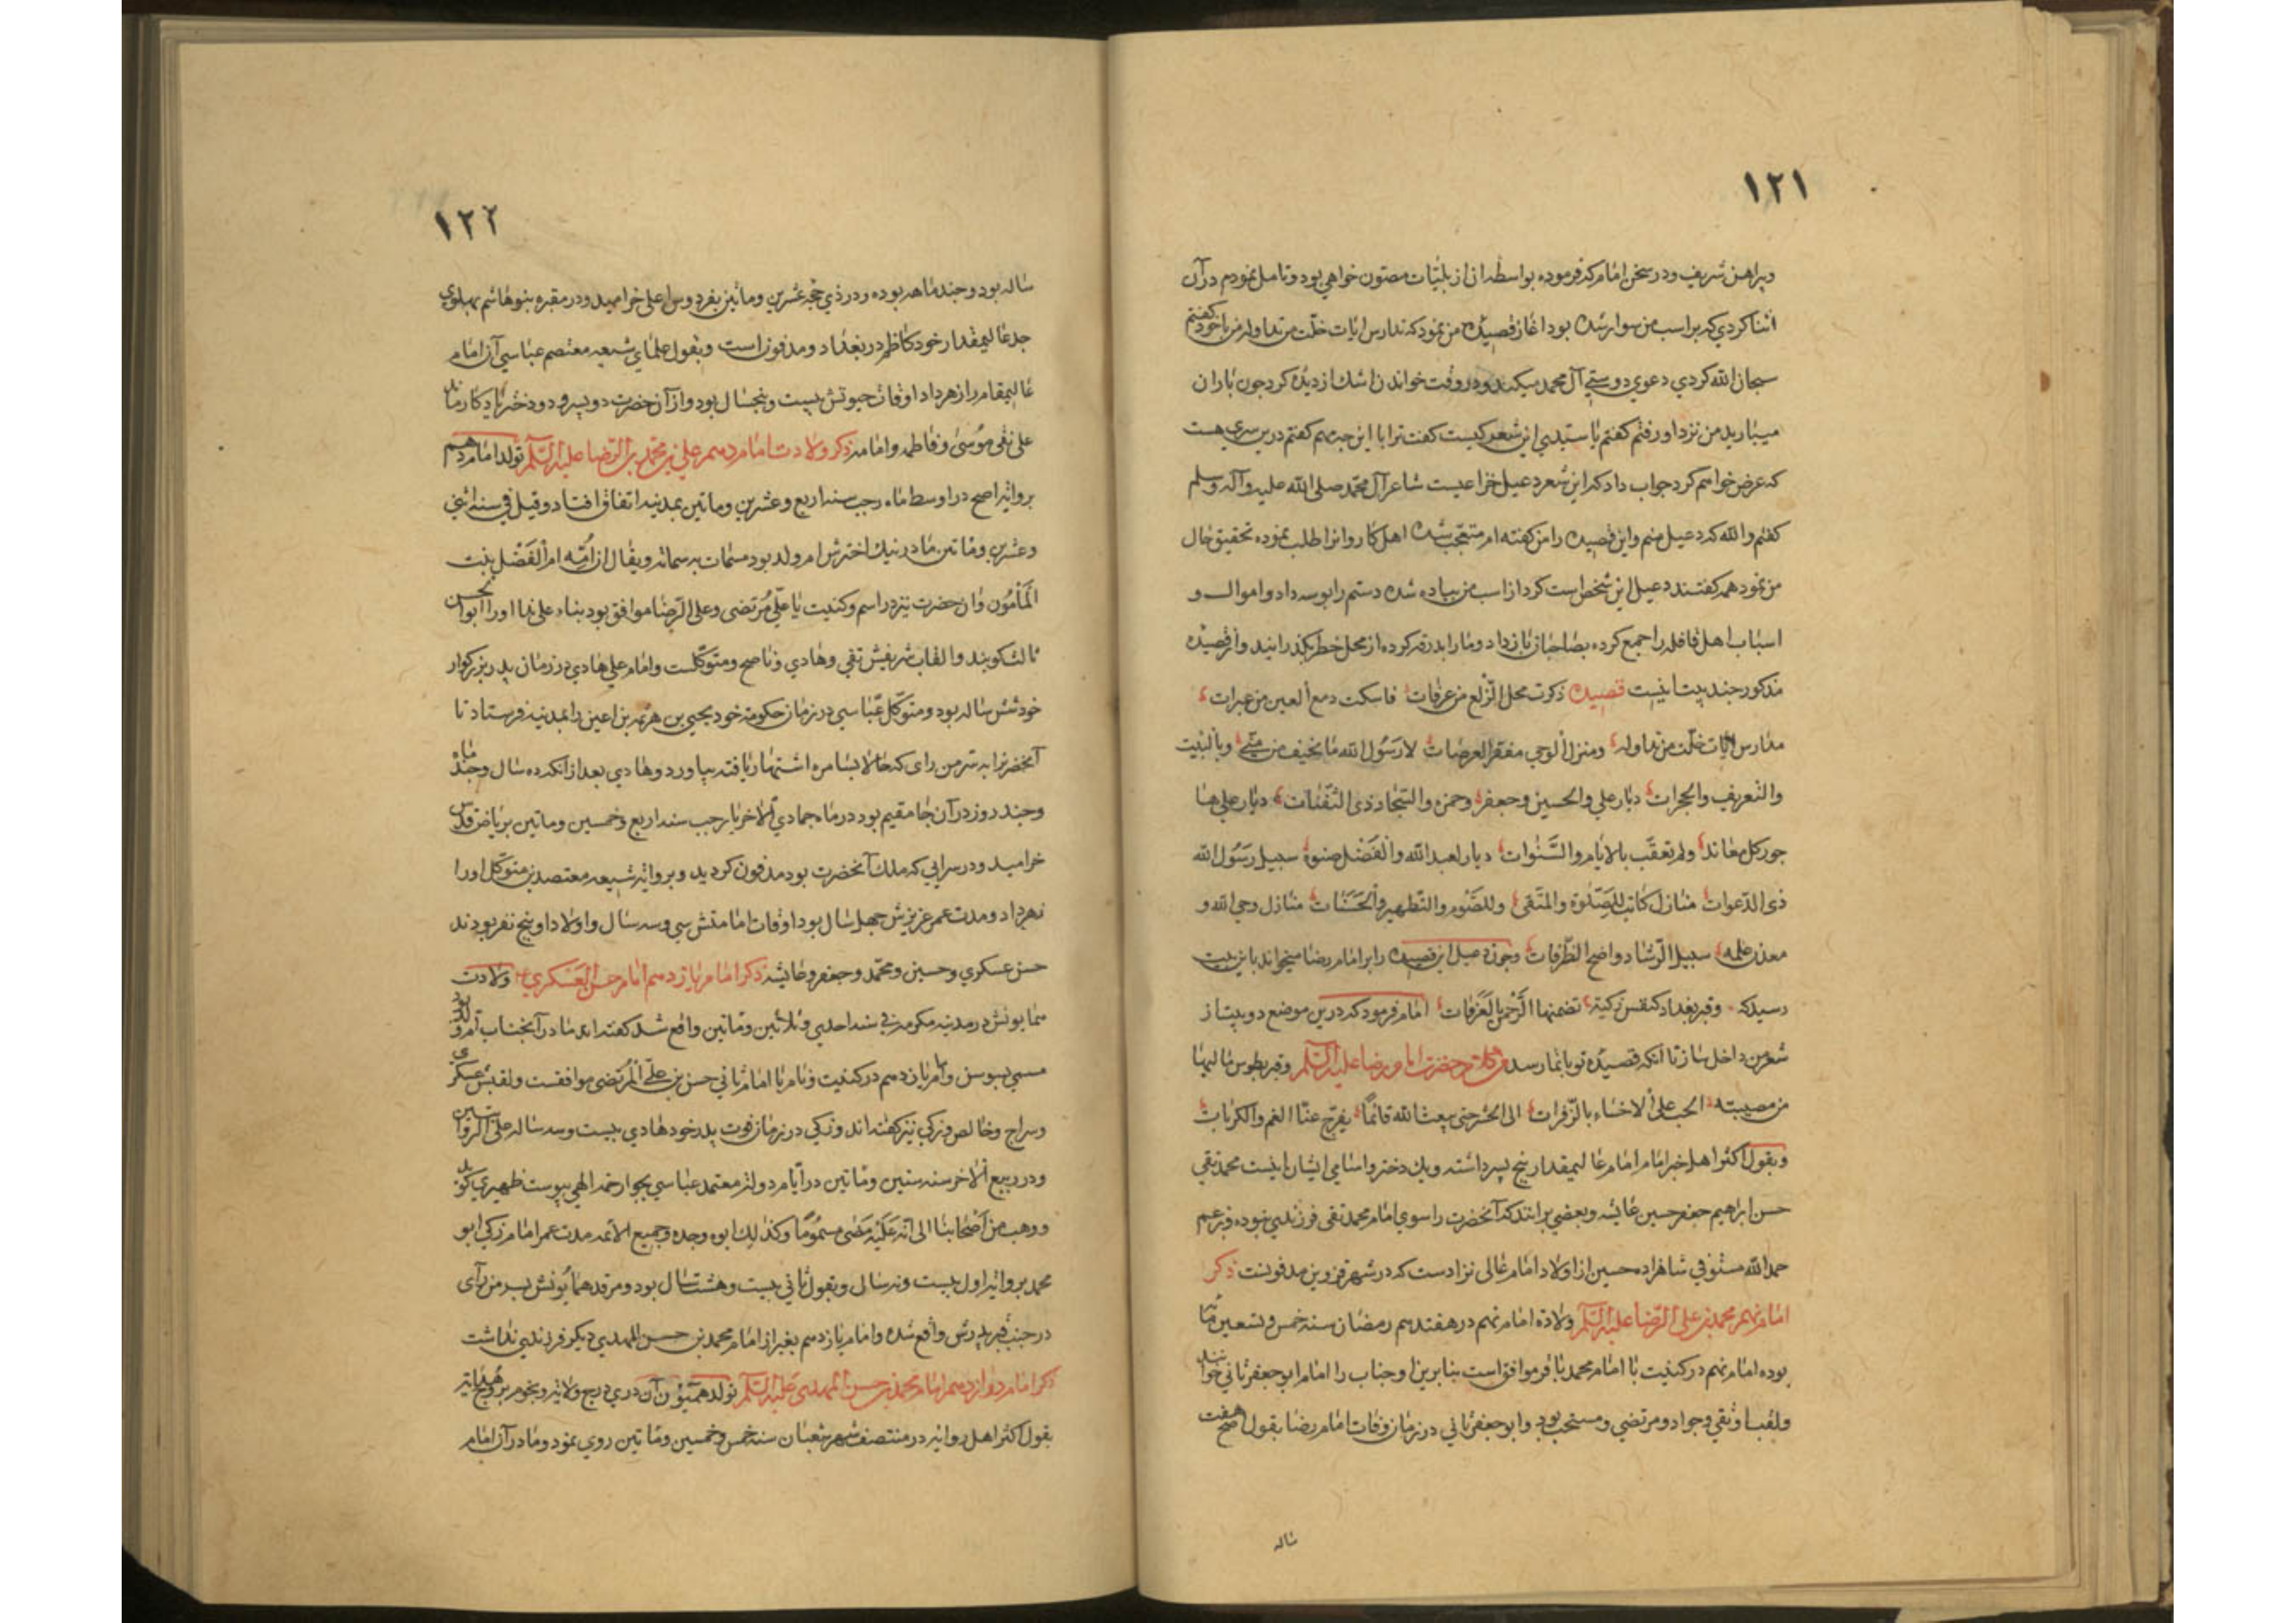 ١٢١
وپراهن شریف ودر سخن امام که فرموده بواسطه ان از بلیّات مصئون خواهی بود وتامل نمودم در آن
اثنا کردی که بر اسب من سوار شده بود اغاز قصیده من نمود که مدارس ایات خلّت من تلاوة من با خود گفتم
سبحان الله کردی دعوی دوستی آل محمد میکند ودر وقت خواندن اشک از دیده کرد جون باران
میبارید من نزد او رفتم کفتم یا سیدی این شعر کیست کفت ترا با این جه مهم کفتم درین سری هست
که عرض خواهم کرد جواب داد که این شعر دعبل خزاعیست شاعر آل محمّد صلی الله علیه وآله وسلم
کفتم والله که دعبل منم واین قصیده را من کفته ام متعجب شده اهل کاروانرا طلب نموده تحقیق حال
من نمود همه کفتند دعبل این شخص است کرد از اسب من پیاده شده دستم را بوسه داد واموال و
اسباب اهل قافله را جمع کرده بصاحبان باز داد ومارا بدرقه کرده از محل خطر بکذرانید واز قصیده
مذکور جند بیت اینست قصیده ذکرت محل الرّبع من عرفات فاسکبت دمع العین من عبرات
مدارس ایات خلّت من تلاوة ومنزل الوحی مقفر العرصات لآل رسُول الله بالخیف من منی وبالبیت
والتعریف والجمرات دیار علی والحسین وجعفر وحمزه والسّجاد ذی الثّفنات دیار علی ها
جور کل معاند ولم تعقّب بالایام والسَّنوات دیار لعبد الله والفَضْل صنوه سبیل رَسُول الله
ذی الدّعوات منازل کانت للصّلوة والتّقی وللصّوم والتّطهیر والحَسَنات منازل وحی الله و
معدن علمه سبیل الرّشاد واضح الطّرقات وجون دعبل این قصیده را بر امام رضا میخواند باین بیت
رسید که وقبر ببغداد لنفس زکیة تضمنها الرّحمن بالغُرُفات امام فرمود که درین موضع دو بیت از
شعر من داخل ساز تا انکه قصیدهٔ تو باتمام رسد حضرت امام رضا علیه السّلم وقبر بطوس یا لها
من مصیبة الحت علی الاحشاء بالزّفرات الی الحشر حتی یبعث الله قائمًا یفرّج عنّا الغم والکربات
وبقول اکثر اهل خبر امام امام عالیمقدار پنج پسر داشته ویک دختر واسامی ایشان اینست محمد تقی
حسن ابراهیم جعفر حسین عایشه وبعضی برانند که آنحضرت را سوای امام محمد تقی فرزندی نبوده وبزعم
حمد الله مستوفی شاهزاده حسین از اولاد امام عالی نژادست که در شهر قزوین مدفونست ذکر
امام نهم محمد بن علی الرّضا علیه السّلم ولادة امام نهم در هفتدهم رمضان سنه خمس وتسعین مأة
بوده امام نهم در کنیت با امام محمد باقر موافق است بنابرین اوجناب را امام ابو جعفر ثانی خوانند
ولقب او تقی وجواد ومرتضی ومنتجب بود وابو جعفر ثانی در زمان وفات امام رضا بقول اصح هفت
ساله
١٢٢
ساله بود وجند ماهه بوده ودر ذی حجّه عشرین وماتین بفردوس اعلی خرامید ودر مقبره بنو هاشم بپهلوی
جد عالیمقدار خود کاظم در بغداد ومدفون است وبقول علمای شیعه معتصم عباسی آن امام
عالیمقام را زهر داد اوقات حیوتش بیست وپنجسال بود واز آن حضرت دو پسر ودو دختر یادکار ماند
علی نقی موُسیٰ وفاطمه وامامه ذکر ولادت امام دهم علی بن محمّد بن الرّضا علیه السّلم تولد امام دهم
بروایة اصح در اوسط ماه رجب سنه اربع وعشرین وماتین بمدینه اتفاق افتاد وقیل فی سنه اثنی
وعشرین وماتین مادر نیک اخترش ام ولد بود مسمات به سمانه ویقال ان اُمّه ام الفَضْل بنت
المَأمُون وآن حضرت نیز در اسم وکنیت با علیّ مُرتضی وعلی الرّضا موافق بود بناء علی هذا اورا ابوالحسن
ثالث کویند والقاب شریفش تقی وهادی وناصح ومتوکلّست وامام علی هادی در زمان پدر بزرکوار
خود شش ساله بود ومتوکّل عّباسی در زمان حکومة خود یحیی بن هرثمه بن اعین را بمدینه فرستاد تا
آنحضرترا به سُرمن رای که حالا بسامره اشتهار یافته بیاورد وهادی بعد از انکه ده سال وجند ماه
وجند روز در آن جا مقیم بود در ماه جمادی الاخر یا رجب سنه اربع وخمسین وماتین بریاض قدس
خرامید ودر سرایی که ملک آنحضرت بود مدفون کردید وبروایة شیعه معتصد بن متوکّل اورا
زهر داد ومدت عمر عزیزش جهل سال بود اوقات امامتش سی وسه سال واولاد او پنج نفر بودند
حسن عسکری وحسین ومحمّد وجعفر وعایشه ذکر امام یازدهم امام حسن العَسْکری ولادت
همایونش در مدینه مکرمه فی سنه احدی وثلاثین وماتین واقع شد کفته اند مادر آنجناب ام ولد بود
مسمی بسوسن وامام یازدهم در کنیت ونام با امام ثانی حسن بن علیّ المُرتضی موافقست ولقبش عسکری
وسراج وخالص وزکی نیز کفته اند وزکی در زمان فوت پدر خود هادی بیست وسه ساله علی الروایتین
ودر ربیع الاخر سنه ستین وماتین در آیام دولة معتمد عباسی بجوار رحمه الهی پیوست ظهیری کوید
وذهب من اَصْحابنا الی انّه عَلَیْه مَضی مسمُومًا وکذٰلک ابوه وجده وجمیع الائمه مدت عمر امام زکی ابو
محمد بروایة اول بیست ونه سالی وبقول ثانی بیست وهشت سال بود ومرقد همایُونش بسر من رآی
در جنب قبر پدرش واقع شده وامام یازدهم بغیر از امام محمد بن حسن المهدی دیکر فرزندی نداشت
ذکر امام دوازدهم امام محمد بن حسن المهدی علیه السّلم تولد همٰیُون آن دری برج ولایة ونجوم برج هدایة
بقول اکثر اهل روایة در منتصف شهر شعبان سنه خمس وخمسین وماتین روی نمود ومادر آن امام